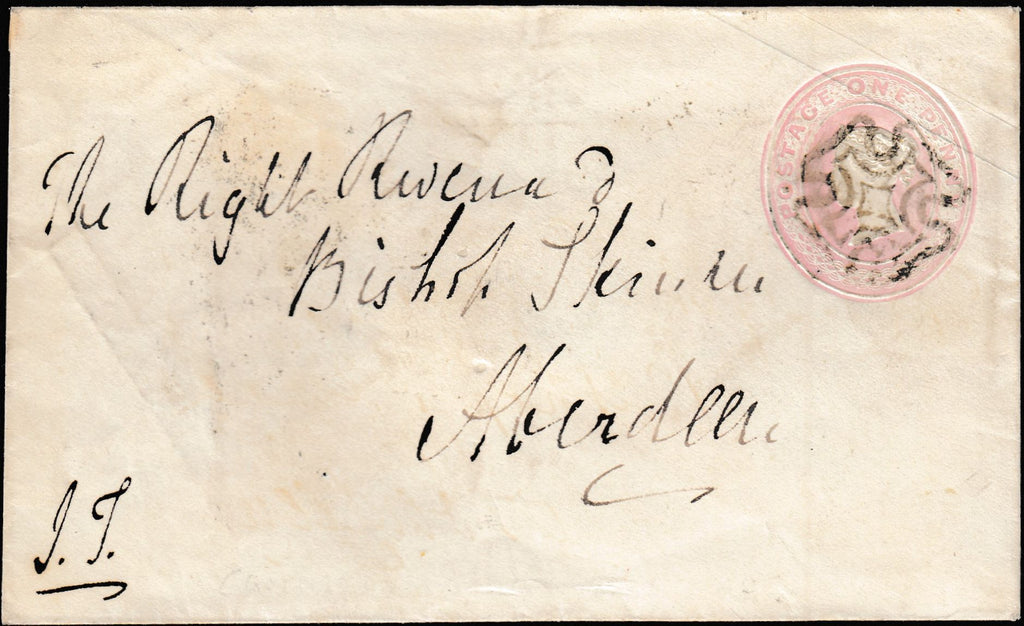 POSTAGE ONE PENNY
The Right Reverend
Bishop Skinner
Aberdeen
J. T.